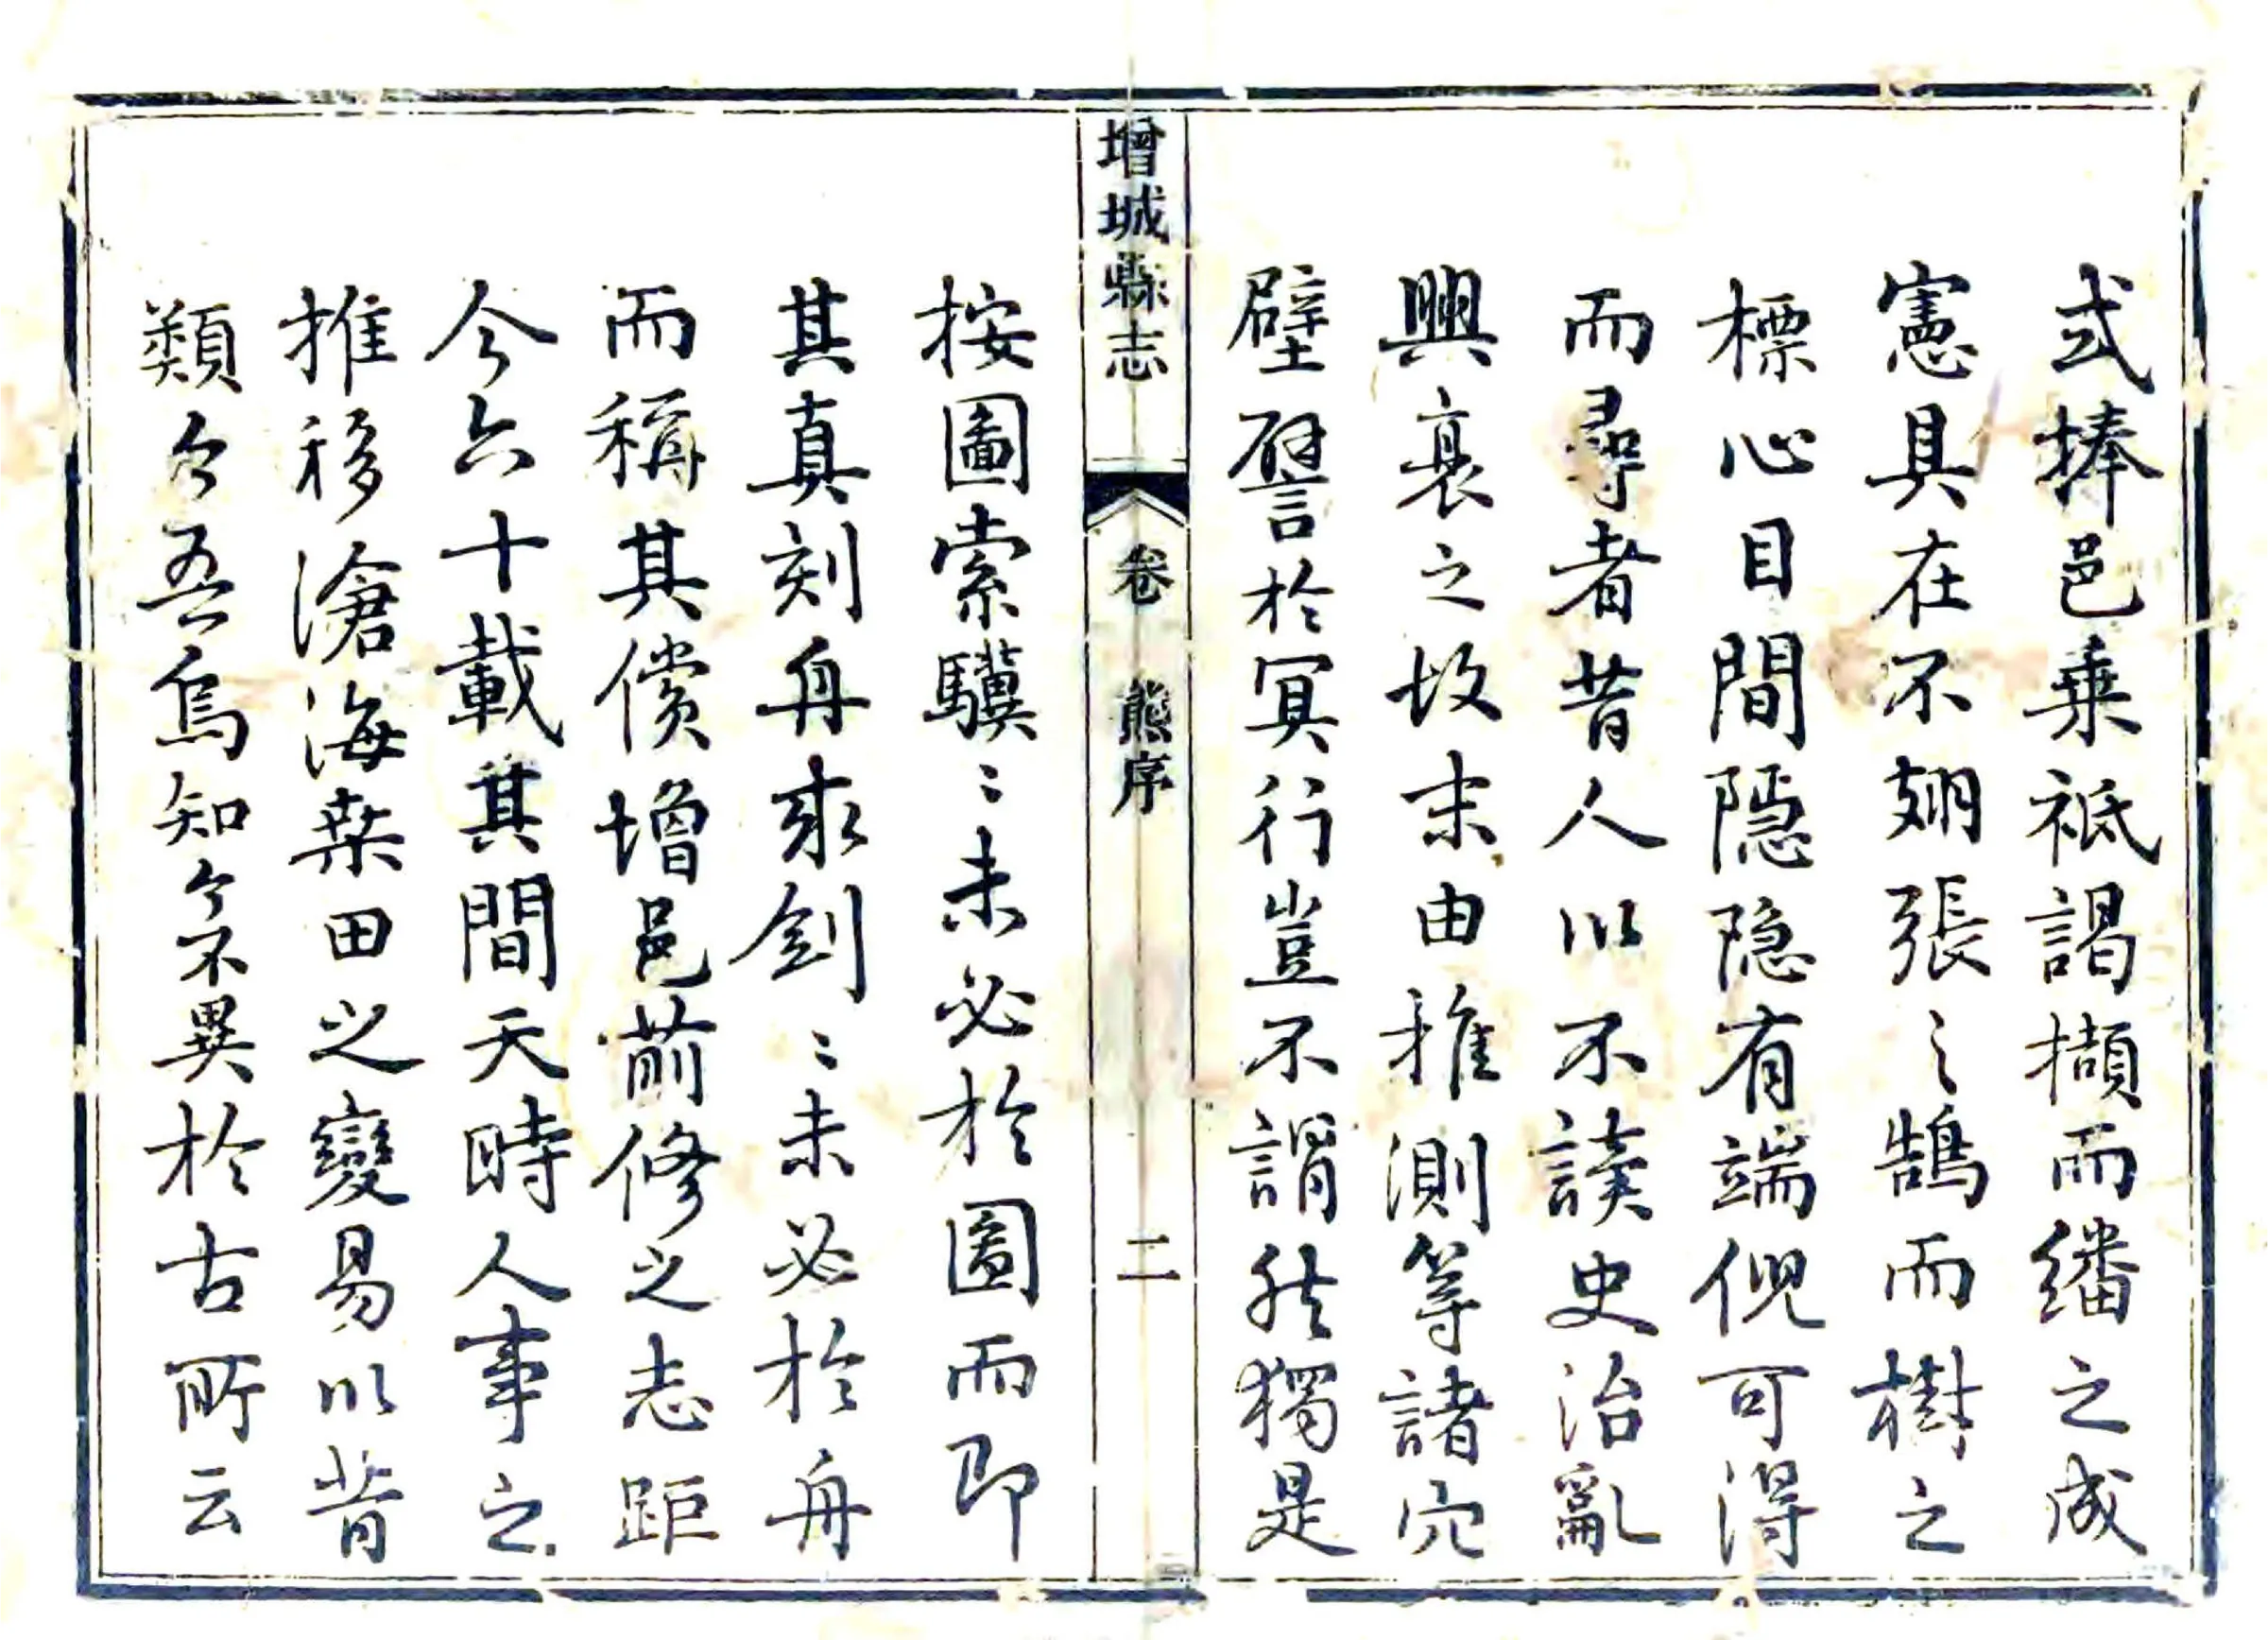 式捧邑乗祗謁擷而繙之成
憲具在不翅張之鵠而樹之
標心目間隱隐有端倪可得
而尋者昔人以不讀史治亂
興衰之故末由推測等諸穴
壁譬於冥行豈不謂然獨是
增城縣志
卷
熊序
二
按圖索驥〻未必於圖而即
其真刻舟求劍〻未必於舟
而稱其償增邑前修之志距
今六十載其間天時人事之
推移滄海桒田之變易以昔
類今吾烏知今不異於古所云